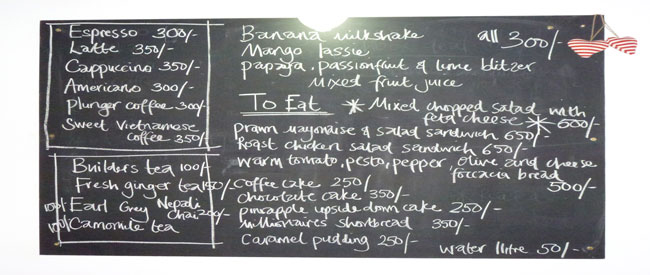 Espresso 300/-
Latte 350/-
Cappuccino 350/-
Americano 300/-
Plunger coffee 300/-
Sweet Vietnamese
coffee 350/-
Builders tea 100/-
Fresh ginger tea 150/-
100/- Earl Grey Nepali
Chai 200/-
100/- Camomile tea
Banana milkshake all 300/-
Mango lassie
papaya, passionfruit & lime blitzer
Mixed fruit juice
To Eat * Mixed chopped salad with
feta cheese * 600/-
Prawn mayonaise & salad sandwich 650/-
Roast chicken salad sandwich 650/-
Warm tomato, pesto, pepper, olive and cheese
foccacia bread
500/-
coffee cake 250/-
chocolate cake 350/-
pineapple upside down cake 250/-
Millionaires shortbread 350/-
Caramel pudding 250/-
water 1litre 50/-